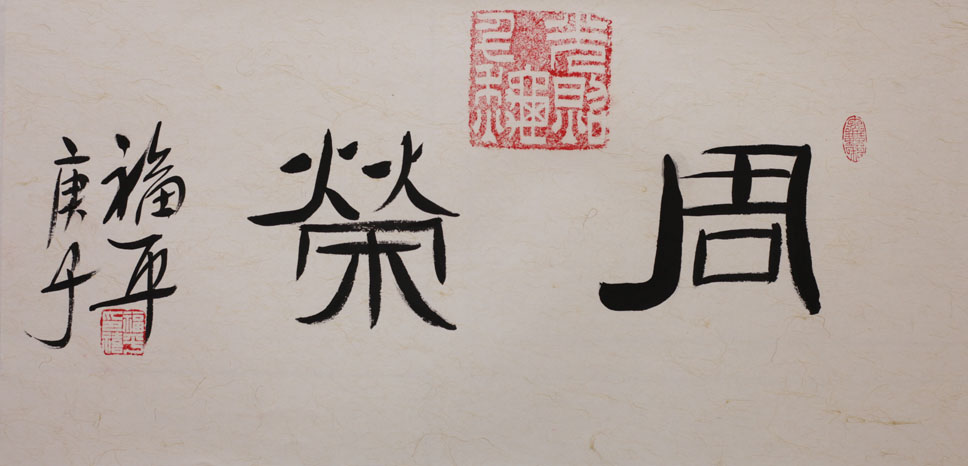 周榮
福平
庚子